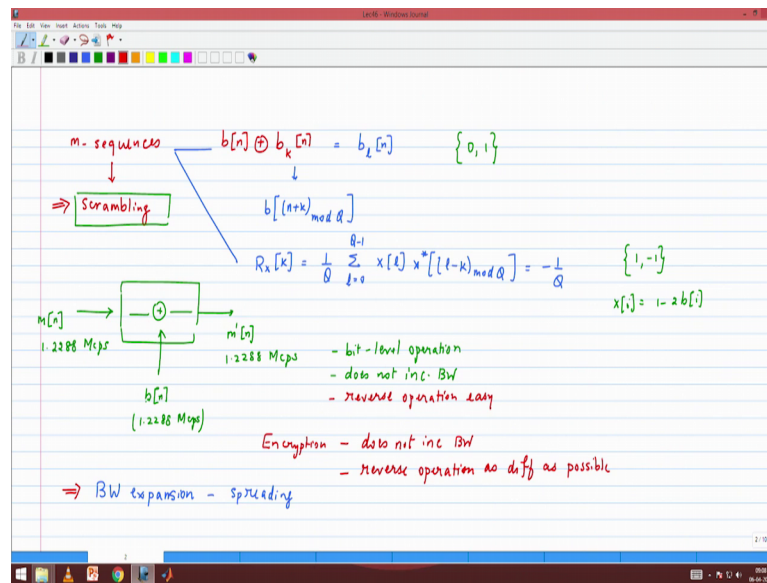 Lec46 - Windows Journal
File Edit View Insert Actions Tools Help
B I
m-sequences b[n] ⊕ b_k[n] = b_l[n] {0, 1}
⇒ Scrambling b[(n+k)_mod Q]
R_x[k] = 1/Q Σ_{l=0}^{Q-1} x[l] x*[(l-k)_mod Q] = -1/Q {1, -1}
x[i] = 1-2b[i]
m[n] + m'[n]
1.2288 Mcps 1.2288 Mcps
b[n]
(1.2288 Mcps)
- bit-level operation
- does not inc. BW
- reverse operation easy
Encryption - does not inc BW
- reverse operation as diff as possible
⇒ BW expansion - spreading
2